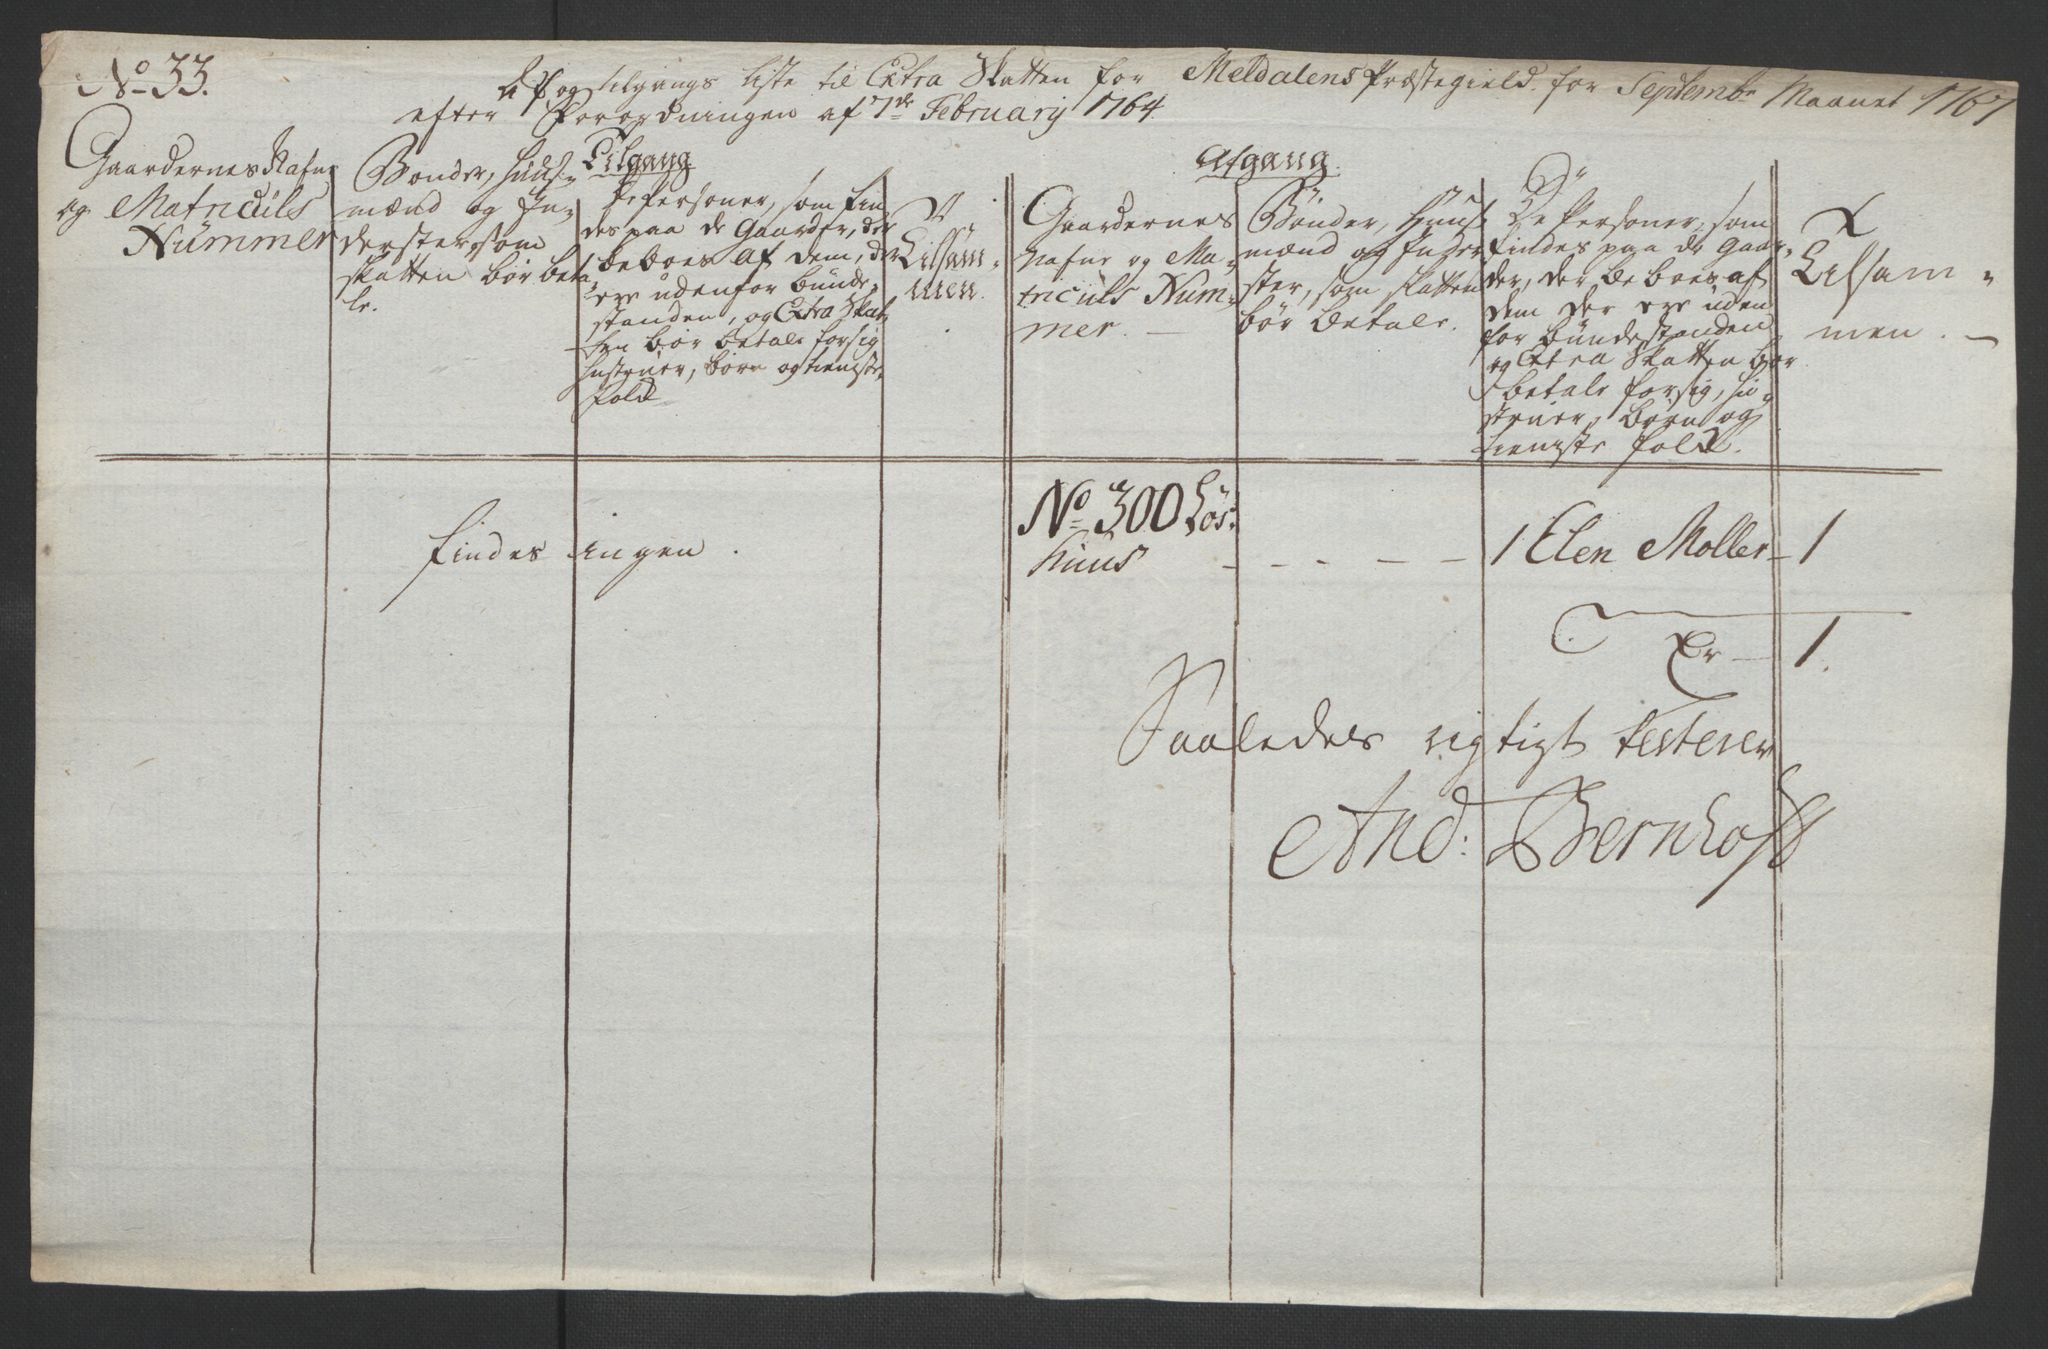 No 33.
Af og tilgangs Liste til Extra Skatten for Meldalens Præstegield for Septembr Maanet 1767
efter Forordningen af 7de February 1764
Tilgang
Gaardernes Nafne
og Matriculs
Nummer
Bønder, Huus-
mænd og In-
derster, som
skatten bør beta-
le.
De Personer, som fin
des paa de Gaarder, der
beboes af dem, der
ere udenfor bunde-
standen, og Extra Skat
ten bør betale for sig
Hustruer, børn og tieniste
folk
Tilsam-
men.
Afgang.
Gaardernes
Nafne og Ma-
triculs Num-
mer.
Bønder, Huus
mænd og Inder
ster, som skatten
bør betale.
De Personer, som
findes paa de Gaar-
der, der beboes af
dem der ere uden
for bundestanden
og Extra Skatten bør
betale for sig, Hu-
struer, børn og
tieniste folk.
Tilsam-
men.
findes ingen.
No 300 Løs:
Huus - - - - - 1 Elen Moller - 1
1.
Saaledes rigtigt testerer
And: Bernhoft